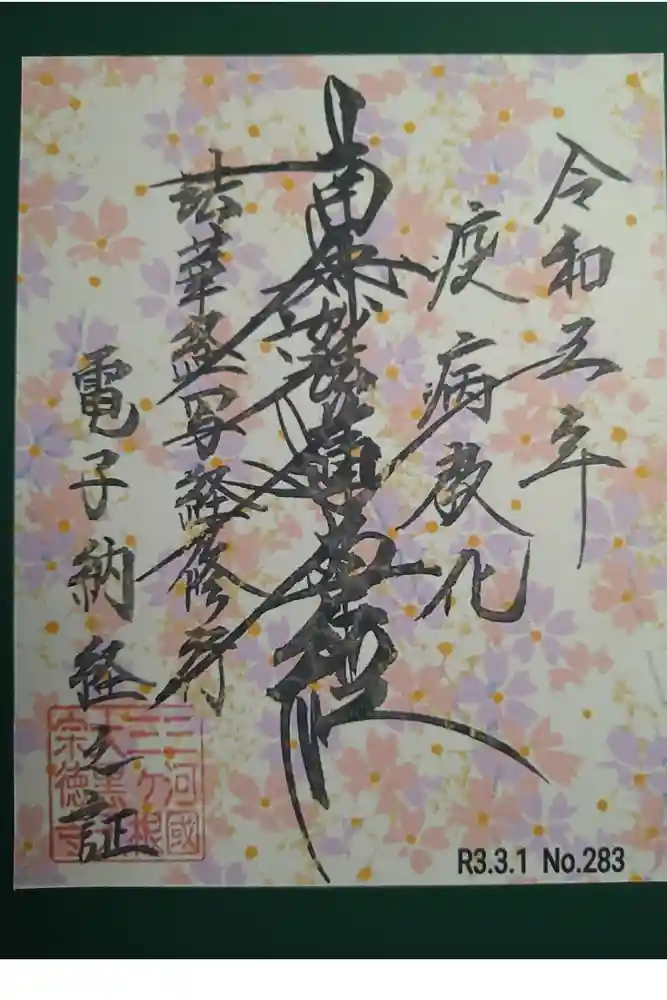 令和三年
疫病教化
南無妙法蓮華経
法華写経修行
電子納経之証
三河國
三ヶ根
大黒
宗徳寺
R3.3.1 No.283